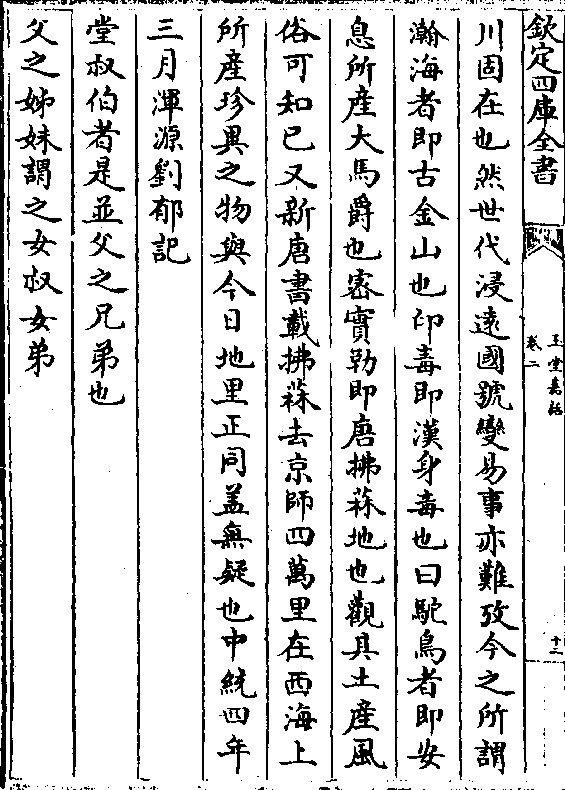 欽定四庫全書
玉堂嘉話
卷二
十二
川固在也然世代浸遠國號變易事亦難攷今之所謂
瀚海者即古金山也印毒即漢身毒也曰駝鳥者即安
息所產大馬爵也密實勒即唐拂菻地也觀具土產風
俗可知已又新唐書載拂菻去京師四萬里在西海上
所產珍異之物與今日地里正同盖無疑也中統四年
三月渾源劉郁記
堂叔伯者是並父之兄弟也
父之姊妹謂之女叔女弟